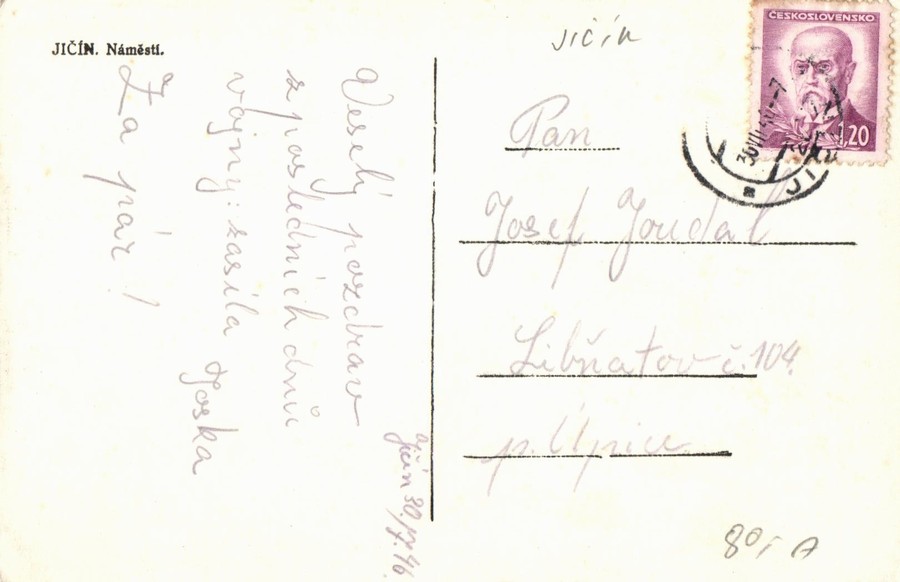 JIČÍN. Náměstí.
Veselý pozdrav
z posledních dnů
vojny: zasílá
Joska
Za pár!
Jičín 30/7.46
JIČÍN
ČESKOSLOVENSKO
1.20
Pan
Josef Joudal
Libňatov č. 104.
p. Úpice.